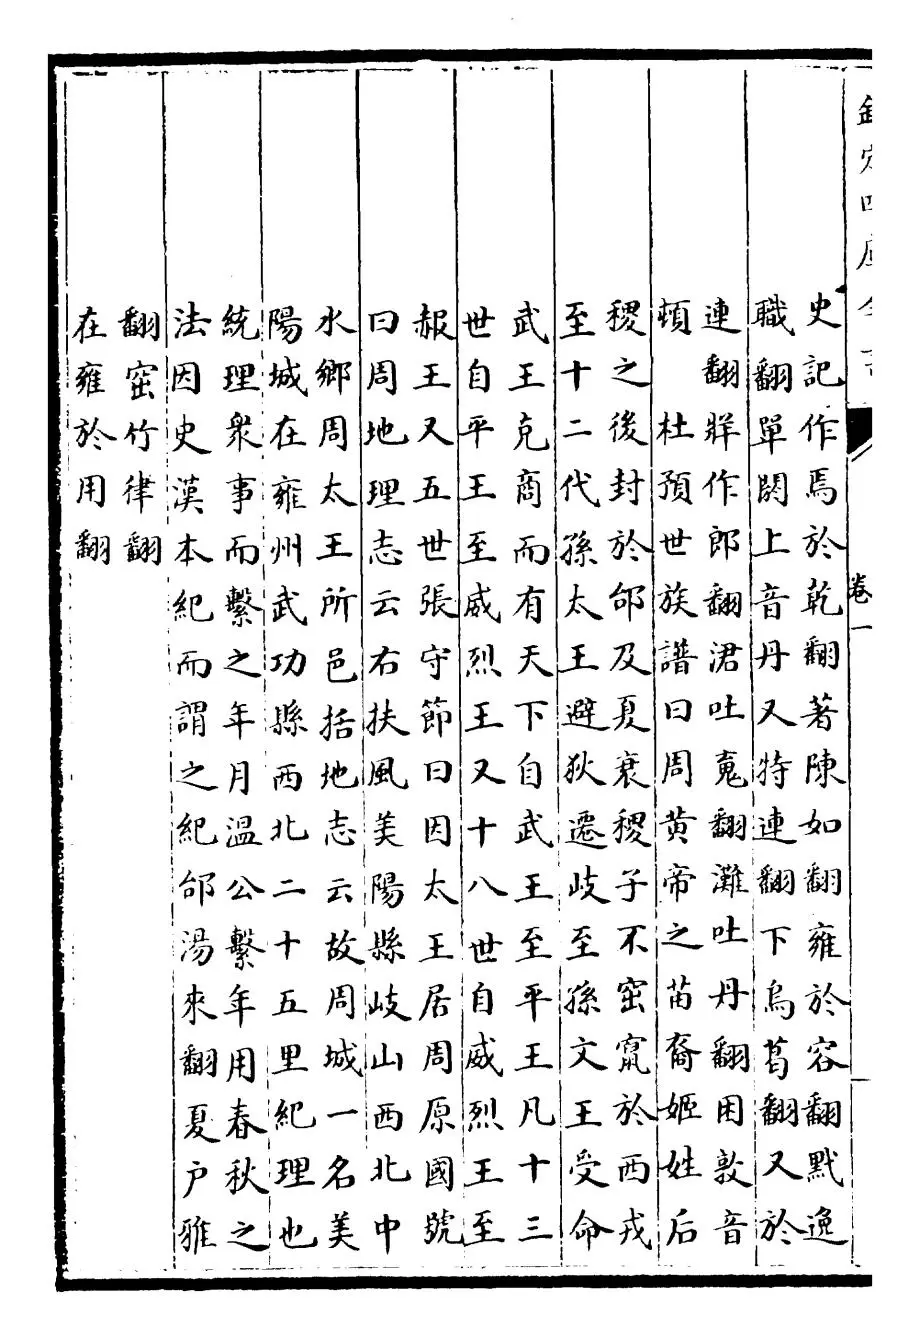 欽定四庫全書
卷一
史記作焉於乾翻著陳如翻雍於容翻默逸
職翻單閼上音丹又特連翻下烏葛翻又於
連翻牂作郎翻涒吐䰟翻灘吐丹翻困敦音
頓杜預世族譜曰周黃帝之苗裔姬姓后
稷之後封於邰及夏衰稷子不窋竄於西戎
至十二代孫太王避狄遷岐至孫文王受命
武王克商而有天下自武王至平王凡十三
世自平王至威烈王又十八世自威烈王至
赧王又五世張守節曰因太王居周原國號
曰周地理志云右扶風美陽縣岐山西北中
水鄉周太王所邑括地志云故周城一名美
陽城在雍州武功縣西北二十五里紀理也
統理衆事而繫之年月温公繫年用春秋之
法因史漢本紀而謂之紀邰湯來翻夏户雅
翻窋竹律翻
在雍於用翻